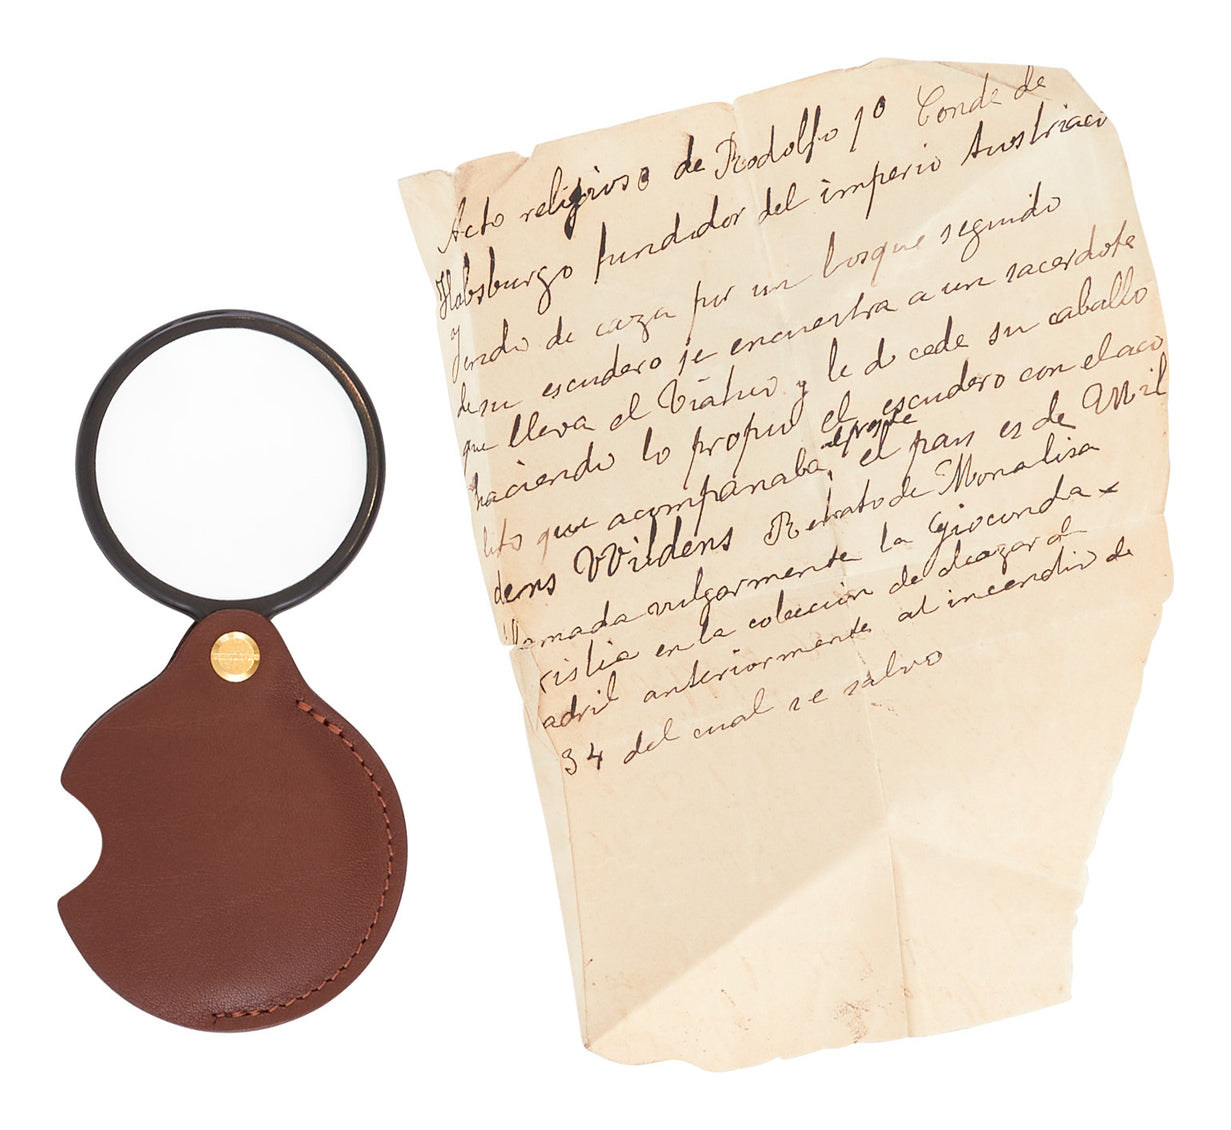 Acto religioso de Rodolfo 1º Conde de
Habsburgo fundador del imperio Austriaco
yendo de caza por un bosque seguido
de su escudero se encuentra a un sacerdote
que lleva el Viático y le d cede su caballo
haciendo lo propio el escudero con el aco
lito que acompañaba al preste el pais es de Wil
dens Wildens Retrato de Monalisa
llamada vulgarmente la Gioconda
existia en la coleccion de alcazar d
adril anteriormente al incendio de
34 del cual se salvo